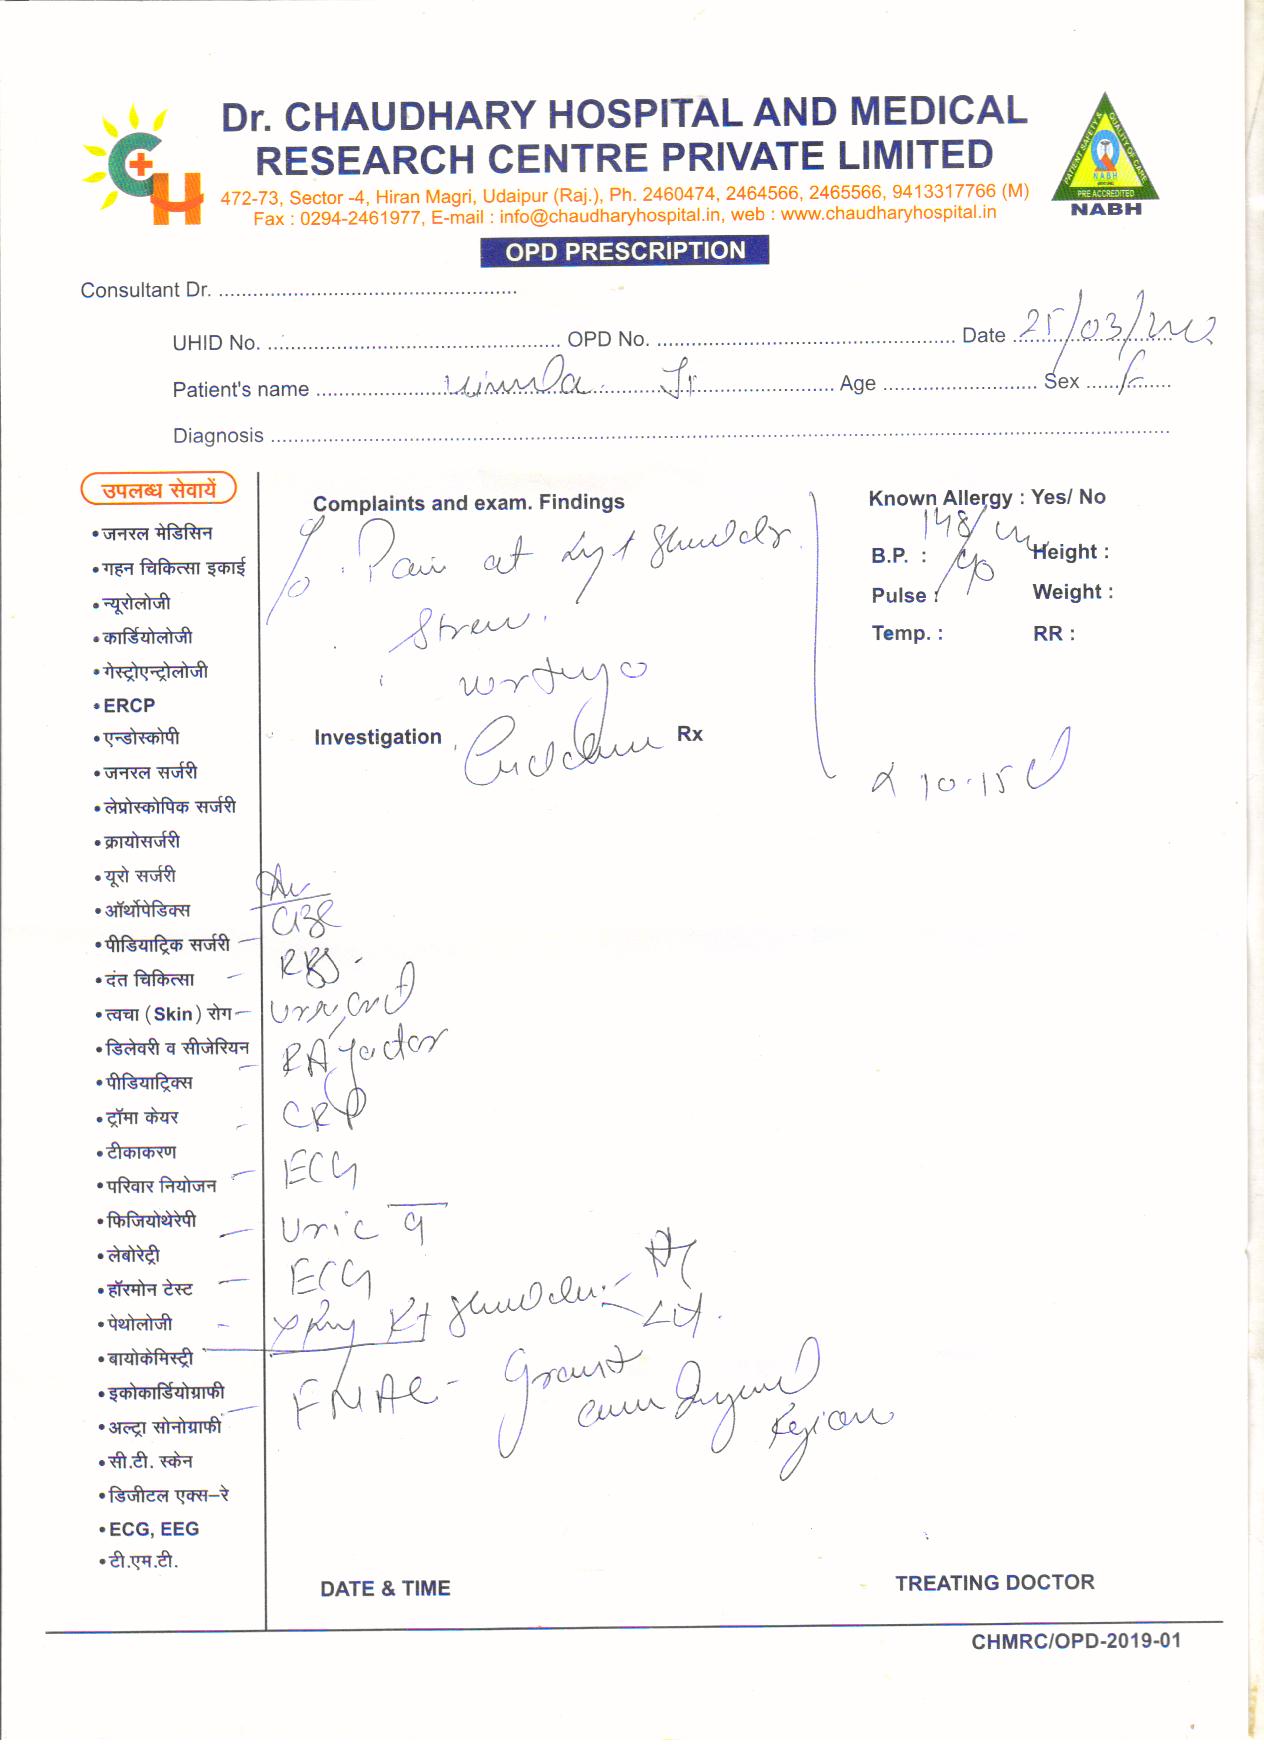 Dr. CHAUDHARY HOSPITAL AND MEDICAL
RESEARCH CENTRE PRIVATE LIMITED
472-73, Sector -4, Hiran Magri, Udaipur (Raj.), Ph. 2460474, 2464566, 2465566, 9413317766 (M)
Fax : 0294-2461977, E-mail : info@chaudharyhospital.in, web : www.chaudharyhospital.in
PATIENT SAFETY & QUALITY OF CARE
NABH
PRE ACCREDITED
NABH
OPD PRESCRIPTION
Consultant Dr.
UHID No. OPD No. Date 25/03/
Patient's name Age Sex F
Diagnosis
उपलब्ध सेवायें
• जनरल मेडिसिन
• गहन चिकित्सा इकाई
• न्यूरोलोजी
• कार्डियोलोजी
• गेस्ट्रोएन्ट्रोलोजी
• ERCP
• एन्डोस्कोपी
• जनरल सर्जरी
• लेप्रोस्कोपिक सर्जरी
• क्रायोसर्जरी
• यूरो सर्जरी
• ऑर्थोपेडिक्स
• पीडियाट्रिक सर्जरी
• दंत चिकित्सा
• त्वचा (Skin) रोग
• डिलेवरी व सीजेरियन
• पीडियाट्रिक्स
• ट्रॉमा केयर
• टीकाकरण
• परिवार नियोजन
• फिजियोथेरेपी
• लेबोरेट्री
• हॉरमोन टेस्ट
• पेथोलोजी
• बायोकेमिस्ट्री
• इकोकार्डियोग्राफी
• अल्ट्रा सोनोग्राफी
• सी.टी. स्केन
• डिजीटल एक्स-रे
• ECG, EEG
• टी.एम.टी.
Complaints and exam. Findings
c/o Pain at shoulder
vertigo
Investigation Rx
Known Allergy : Yes/ No
B.P. : 148/90 Height :
Pulse : Weight :
Temp. : RR :
x 10-15 d
CBC
RBS
RA factor
CRP
ECG
Uric
ECG
X Ray Rt shoulder - AP
Lat.
FNAC -
Region
DATE & TIME
TREATING DOCTOR
CHMRC/OPD-2019-01